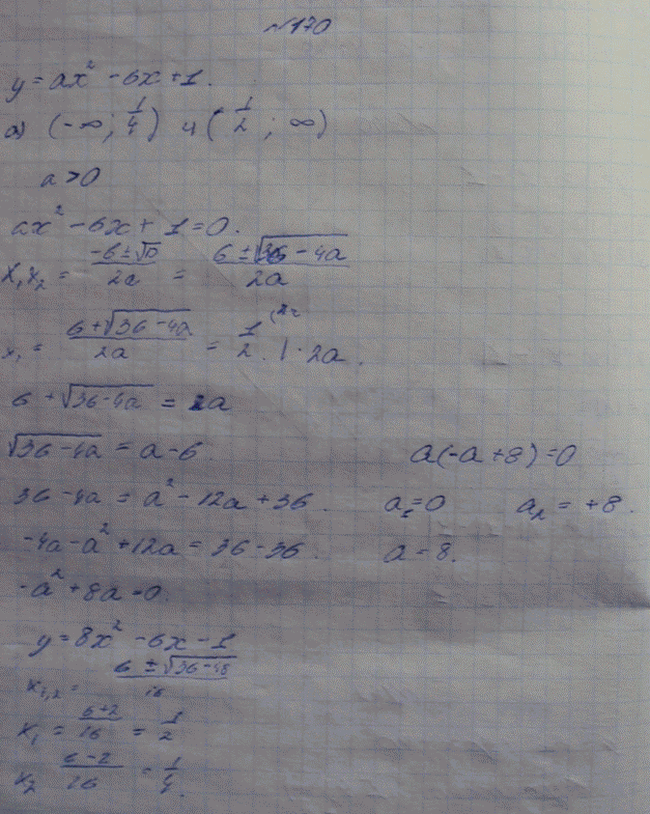 №170
y = ax² - 6x + 1.
а) (-∞; 1/4) и (1/2; ∞)
a > 0
ax² - 6x + 1 = 0.
x₁x₂ = (-6 ± √D)/2a = (6 ± √(36 - 4a))/2a
x₁ = (6 + √(36 - 4a))/2a = 1/2 . | · 2a.
6 + √(36 - 4a) = a
√(36 - 4a) = a - 6.
a(-a + 8) = 0
36 - 4a = a² - 12a + 36.
a₁ = 0 a₂ = +8.
-4a - a² + 12a = 36 - 36.
a = 8.
-a² + 8a = 0.
y = 8x² - 6x - 1
x₁,₂ = (6 ± √(36 - 48))/16
x₁ = (6+2)/16 = 1/2
x₂ (6-2)/16 = 1/4.